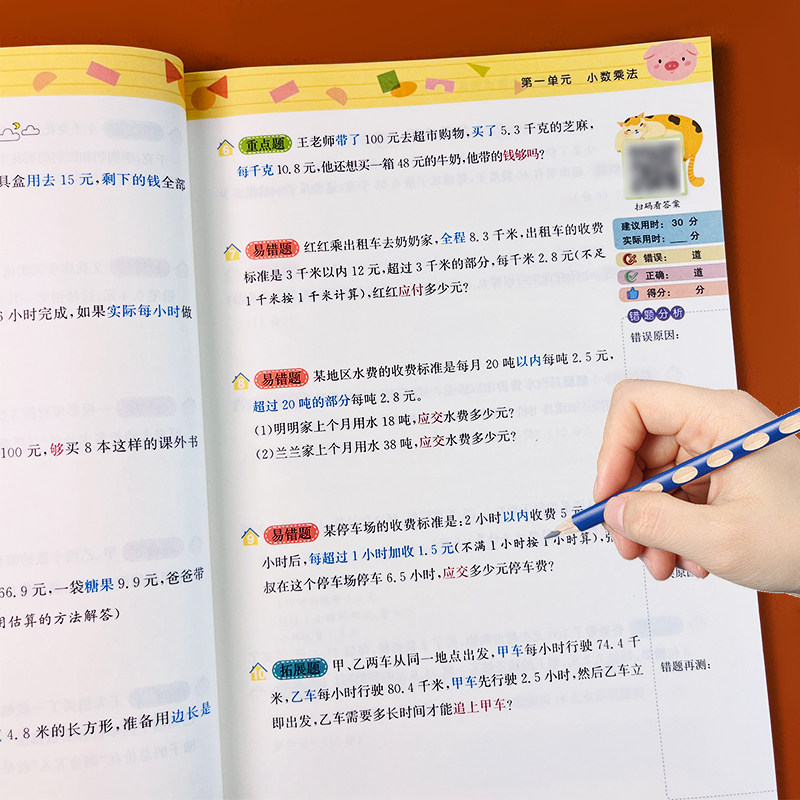 具盒用去 15 元,剩下的钱全部
6 小时完成,如果实际每小时做
100 元,够买 8 本这样的课外书
66.9 元,一袋糖果 9.9 元,爸爸带
用估算的方法解答)
4.8 米的长方形,准备用边长是
第一单元 小数乘法
6 重点题 王老师带了 100 元去超市购物,买了 5.3 千克的芝麻,
每千克 10.8 元,他还想买一箱 48 元的牛奶,他带的钱够吗?
7 易错题 红红乘出租车去奶奶家,全程 8.3 千米,出租车的收费
标准是 3 千米以内 12 元,超过 3 千米的部分,每千米 2.8 元(不足
1 千米按 1 千米计算),红红应付多少元?
8 易错题 某地区水费的收费标准是每月 20 吨以内每吨 2.5 元,
超过 20 吨的部分每吨 2.8 元。
(1)明明家上个月用水 18 吨,应交水费多少元?
(2)兰兰家上个月用水 38 吨,应交水费多少元?
9 易错题 某停车场的收费标准是:2 小时以内收费 5 元
小时后,每超过 1 小时加收 1.5 元(不满 1 小时按 1 小时算),张
叔在这个停车场停车 6.5 小时,应交多少元停车费?
10 拓展题 甲、乙两车从同一地点出发,甲车每小时行驶 74.4 千
米,乙车每小时行驶 80.4 千米,甲车先行驶 2.5 小时,然后乙车立
即出发,乙车需要多长时间才能追上甲车?
扫码看答案
建议用时: 30 分
实际用时:___分
错误: 道
正确: 道
得分: 分
错题分析
错误原因:
错题再测: